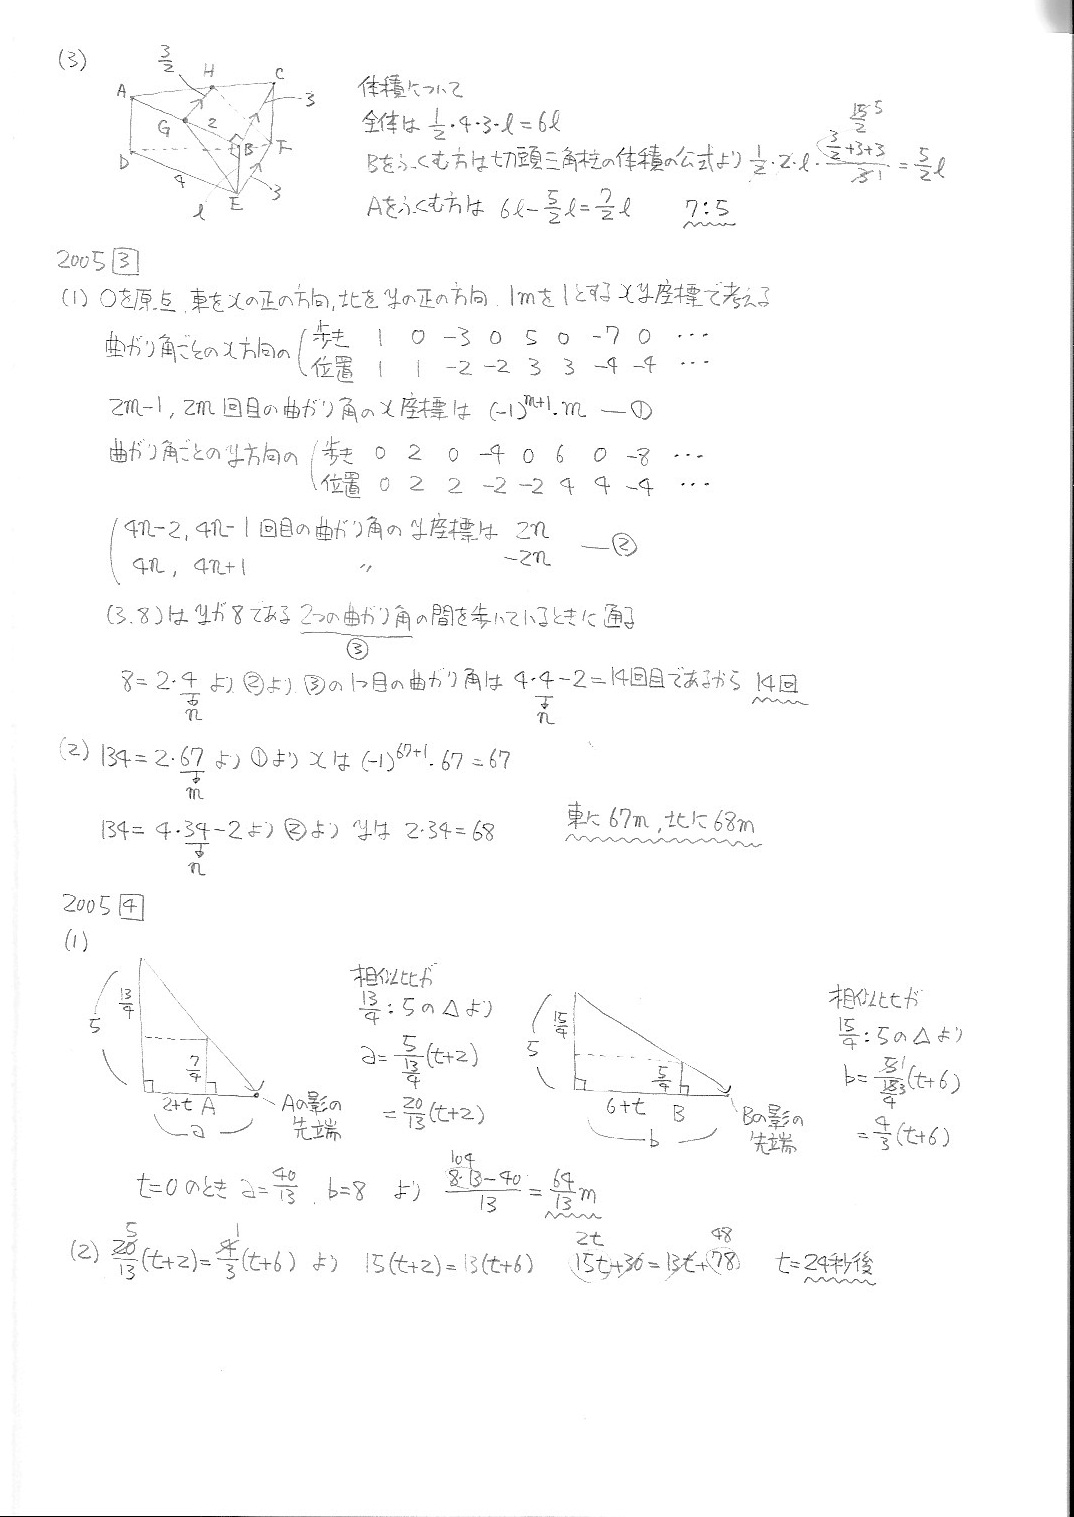 (3)
A H C G B D F E 3/2 2 3 4 3 l
体積について
全体は 1/2・4・3・l=6l
Bをふくむ方は切頭三角柱の体積の公式より 1/2・2・l・(3/2+3+3)/3=5/2 l
15/2 5 1
Aをふくむ方は 6l-5/2 l=7/2 l 7:5
2005 3
(1) Oを原点、東をxの正の方向、北をyの正の方向、1mを1とするxy座標で考える
曲がり角ごとのx方向の 歩き 1 0 -3 0 5 0 -7 0 …
位置 1 1 -2 -2 3 3 -4 -4 …
2m-1, 2m回目の曲がり角のx座標は (-1)^{m+1}・m ―①
曲がり角ごとのy方向の 歩き 0 2 0 -4 0 6 0 -8 …
位置 0 2 2 -2 -2 4 4 -4 …
4n-2, 4n-1回目の曲がり角のy座標は 2n
4n, 4n+1 〃 -2n ―②
(3.8)はyが8である2つの曲がり角の間を歩いているときに通る
③
8=2・4より②より③の1つ目の曲がり角は4・4-2=14回目であるから 14回
n n
(2) 134=2・67より①よりxは(-1)^{67+1}・67=67
m
134=4・34-2より②よりyは 2・34=68 東に67m,北に68m
n
2005 4
(1)
5 13/4 7/4 2+t A a
Aの影の
先端
相似比が
13/4:5の△より
a=5/(13/4)(t+2)
=20/13(t+2)
5 15/4 5/4 6+t B b
Bの影の
先端
相似比が
15/4:5の△より
b=5/(15/4)(t+6)
1 3
=4/3(t+6)
t=0のとき a=40/13、b=8 より (8・13-40)/13=64/13 m
104
(2) 20/13(t+2)=4/3(t+6) より 15(t+2)=13(t+6) 15t+30=13t+78 t=24秒後
5 1 2t 48